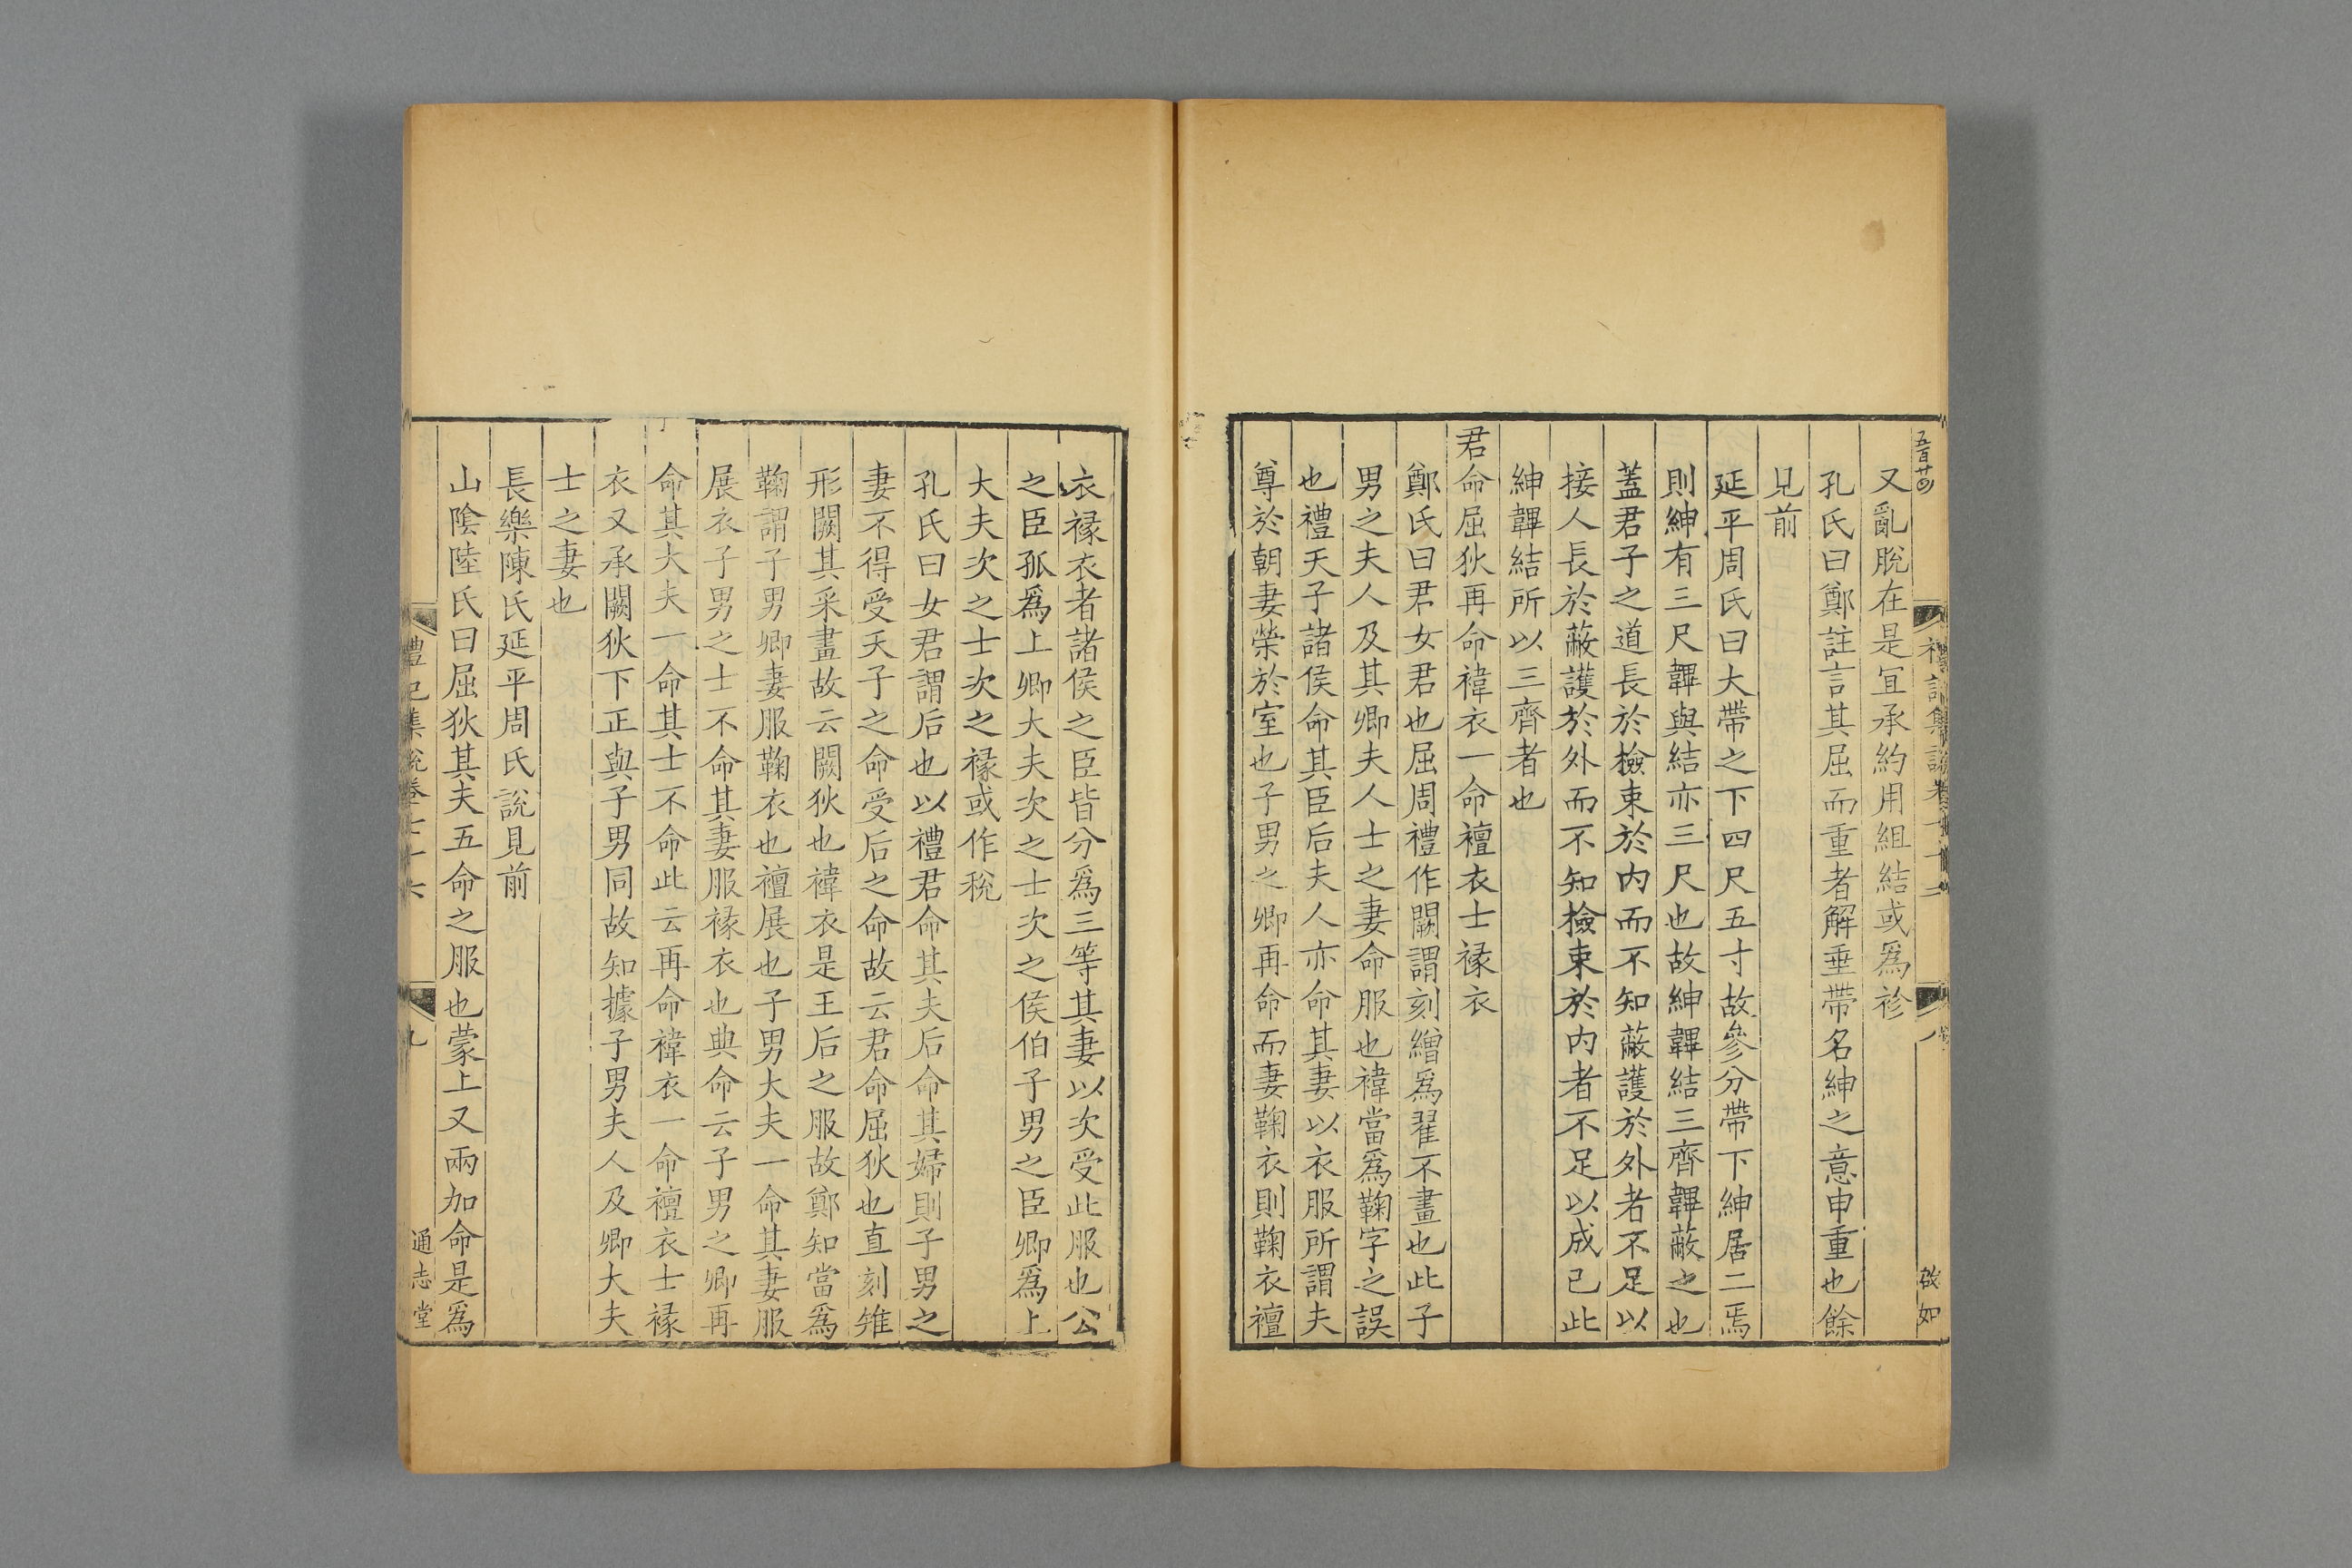 又亂脫在是宜承約用組結或爲袗
孔氏曰鄭註言其屈而重者解垂帶名紳之意申重也餘
見前
延平周氏曰大帶之下四尺五寸故參分帶下紳居二焉
則紳有三尺韠與結亦三尺也故紳韠結三齊韠蔽之也
蓋君子之道長於檢束於内而不知蔽護於外者不足以
接人長於蔽護於外而不知檢束於内者不足以成已此
紳韠結所以三齊者也
君命屈狄再命褘衣一命襢衣士褖衣
鄭氏曰君女君也屈周禮作闕謂刻繒爲翟不畫也此子
男之夫人及其卿夫人士之妻命服也褘當爲鞠字之誤
也禮天子諸侯命其臣后夫人亦命其妻以衣服所謂夫
尊於朝妻榮於室也子男之卿再命而妻鞠衣則鞠衣襢
衣褖衣者諸侯之臣皆分爲三等其妻以次受此服也公
之臣孤爲上卿大夫次之士次之侯伯子男之臣卿爲上
大夫次之士次之褖或作稅
孔氏曰女君謂后也以禮君命其夫后命其婦則子男之
妻不得受天子之命受后之命故云君命屈狄也直刻雉
形闕其采畫故云闕狄也褘衣是王后之服故鄭知當爲
鞠謂子男卿妻服鞠衣也襢展也子男大夫一命其妻服
展衣子男之士不命其妻服褖衣也典命云子男之卿再
命其大夫一命其士不命此云再命褘衣一命襢衣士褖
衣又承闕狄下正與子男同故知據子男夫人及卿大夫
士之妻也
長樂陳氏延平周氏說見前
山陰陸氏曰屈狄其夫五命之服也蒙上又兩加命是爲
禮記集說卷七十六
九
通志堂